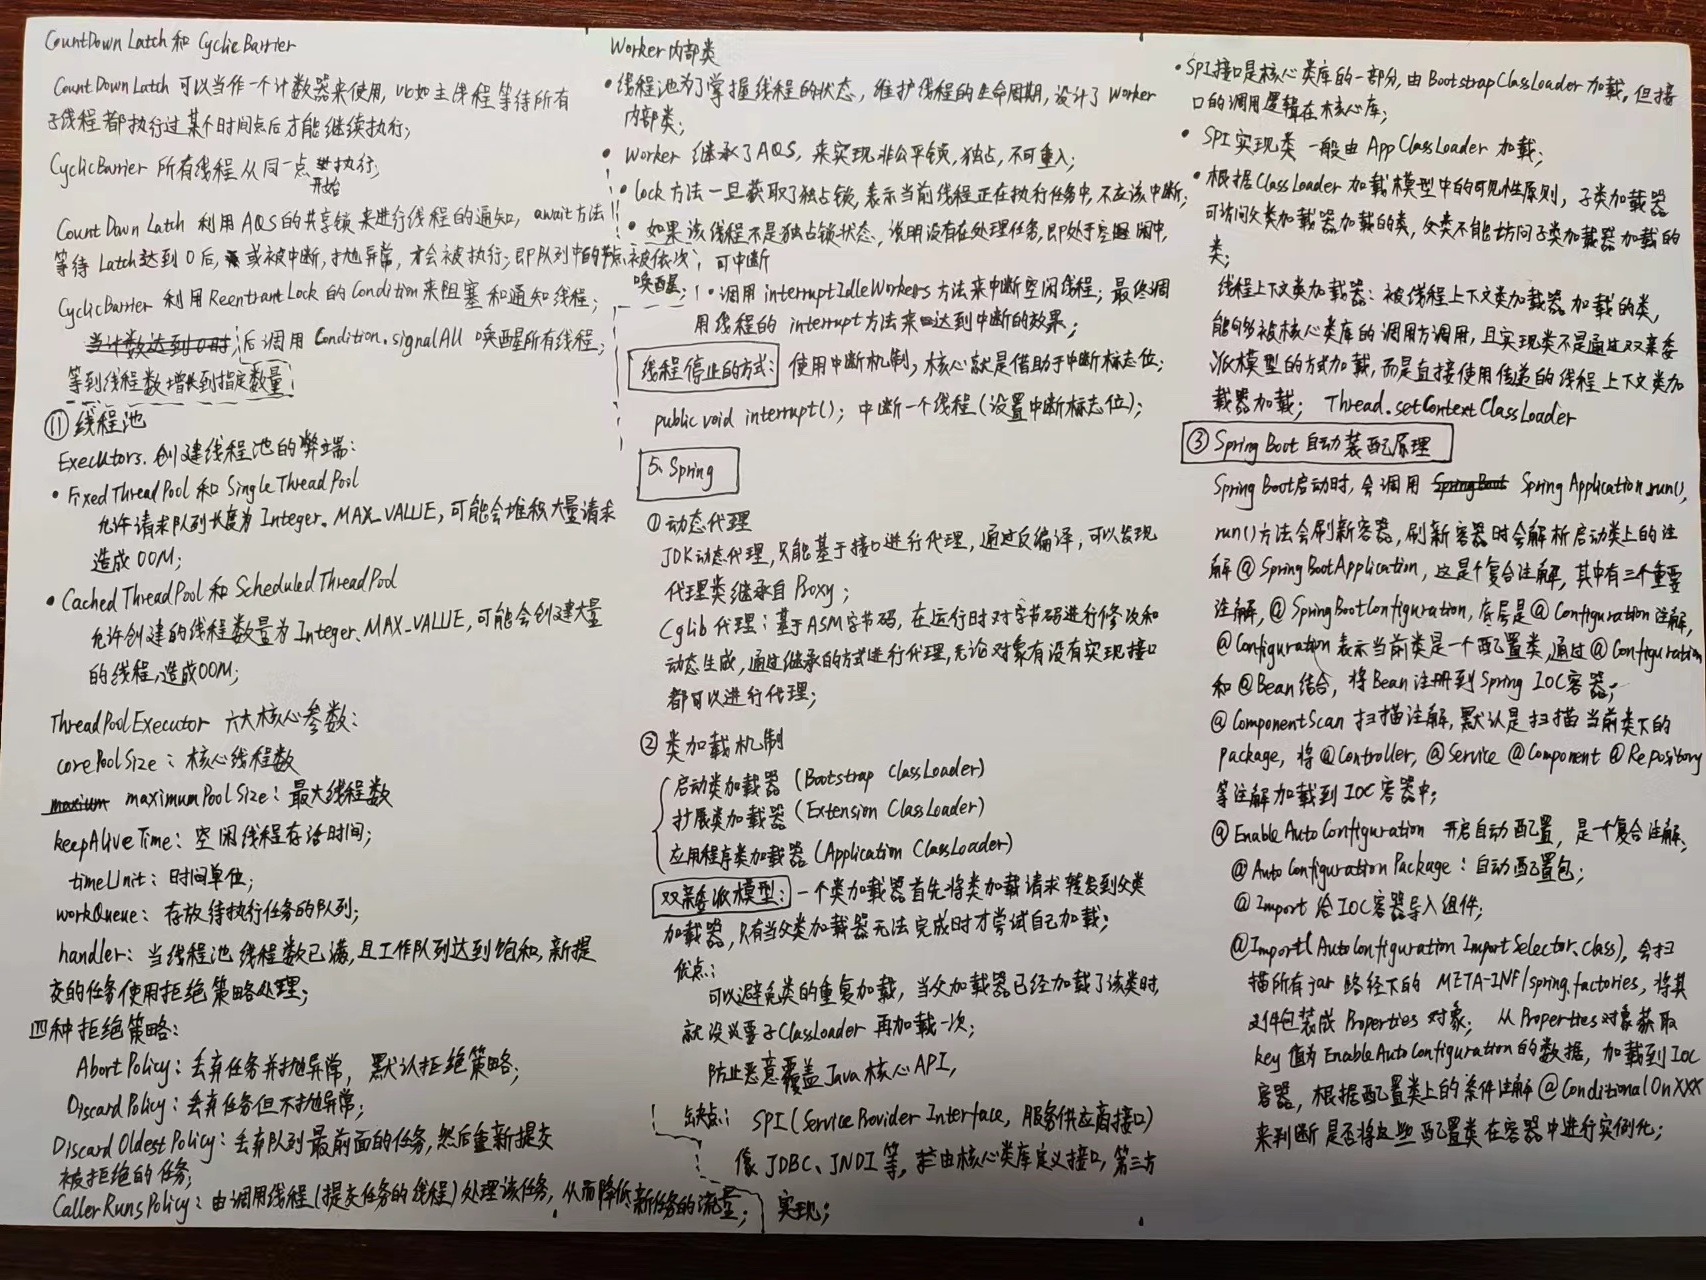 CountDown Latch 和 Cyclic Barrier
CountDown Latch 可以当作一个计数器来使用,比如主线程等待所有
子线程都执行过某个时间点后才能继续执行;
CyclicBarrier 所有线程从同一点开始执行;
CountDown Latch 利用AQS的共享锁来进行线程的通知, await方法
等待 Latch达到0后, 或被中断,抛异常,才会被执行;即队列中的节点被依次
唤醒;
CyclicBarrier 利用 ReentrantLock 的 Condition来阻塞和通知线程;
当计数达到0时;后调用 Condition.signalAll 唤醒所有线程;
等到线程数增长到指定数量
⑪ 线程池
Executors. 创建线程池的弊端:
• FixedThreadPool 和 SingleThreadPool
允许请求队列长度为Integer. MAX_VALUE, 可能会堆积大量请求
造成OOM;
• Cached ThreadPool 和 Scheduled ThreadPool
允许创建的线程数量为Integer. MAX_VALUE, 可能会创建大量
的线程,造成OOM;
ThreadPoolExecutor 六大核心参数:
corePoolSize: 核心线程数
maxium maximumPoolSize: 最大线程数
keepAliveTime: 空闲线程存活时间;
timeUnit: 时间单位;
workQueue: 存放待执行任务的队列;
handler: 当线程池线程数已满,且工作队列达到饱和,新提
交的任务使用拒绝策略处理;
四种拒绝策略:
Abort Policy: 丢弃任务并抛异常, 默认拒绝策略;
Discard Policy: 丢弃任务但不抛异常;
Discard Oldest Policy: 丢弃队列最前面的任务,然后重新提交
被拒绝的任务;
CallerRunsPolicy: 由调用线程(提交任务的线程)处理该任务, 从而降低新任务的流量;
Worker 内部类
• 线程池为了掌握线程的状态, 维护线程的生命周期, 设计了 Worker
内部类;
• Worker 继承了AQS, 来实现非公平锁, 独占, 不可重入;
• lock 方法一旦获取了独占锁, 表示当前线程正在执行任务中, 不应该中断;
• 如果该线程不是独占锁状态, 说明没有在处理任务,即处于空闲中,
可中断
• 调用 interruptIdleWorkers 方法来中断空闲线程; 最终调
用线程的 interrupt方法来达到中断的效果;
线程停止的方式: 使用中断机制, 核心就是借助于中断标志位;
public void interrupt(); 中断一个线程(设置中断标志位);
5、Spring
① 动态代理
JDK动态代理, 只能基于接口进行代理, 通过反编译, 可以发现
代理类继承自 Proxy;
Cglib 代理: 基于ASM字节码, 在运行时对字节码进行修改和
动态生成, 通过继承的方式进行代理,无论对象有没有实现接口
都可以进行代理;
② 类加载机制
启动类加载器 (Bootstrap ClassLoader)
扩展类加载器 (Extension ClassLoader)
应用程序类加载器 (Application ClassLoader)
双亲委派模型: 一个类加载器首先将类加载请求转发到父类
加载器, 只有当父类加载器无法完成时才尝试自己加载;
优点:
可以避免类的重复加载, 当父加载器已经加载了该类时,
就没必要子ClassLoader 再加载一次;
防止恶意覆盖Java核心API,
缺点: SPI (Service Provider Interface, 服务供应商接口)
像 JDBC、JNDI 等, 由核心类库定义接口, 第三方
实现;
• SPI接口是核心类库的一部分, 由 BootstrapClassLoader 加载, 但接
口的调用逻辑在核心库;
• SPI 实现类 一般由 AppClassLoader 加载;
• 根据ClassLoader 加载模型中的可见性原则, 子类加载器
可访问父类加载器加载的类, 父类不能访问子类加载器加载的
类;
线程上下文类加载器: 被线程上下文类加载器加载的类,
能够被核心类库的调用方调用, 且实现类不是通过双亲委
派模型的方式加载, 而是直接使用传递的线程上下文类加
载器加载; Thread.setContextClassLoader
③ Spring Boot 自动装配原理
Spring Boot启动时, 会调用 SpringBoot Spring Application.run(),
run()方法会刷新容器, 刷新容器时会解析启动类上的注
解@SpringBootApplication, 这是个复合注解, 其中有三个重要
注解, @SpringBootConfiguration, 底层是@Configuration注解,
@Configuration 表示当前类是一个配置类,通过@Configuration
和@Bean结合, 将Bean注册到Spring IOC容器;
@ComponentScan 扫描注解, 默认是扫描当前类下的
package, 将@Controller, @Service @Component @Repository
等注解加载到IOC容器中;
@EnableAutoConfiguration 开启自动配置, 是一个复合注解、
@AutoConfigurationPackage: 自动配置包;
@Import 给IOC容器导入组件;
@Import(AutoConfigurationImportSelector.class), 会扫
描所有jar 路径下的 META-INF/spring.factories, 将其
文件包装成 Properties 对象; 从Properties对象获取
key值为 EnableAutoConfiguration的数据, 加载到IOC
容器, 根据配置类上的条件注解@ConditionalOnXXX
来判断是否将这些配置类在容器中进行实例化;